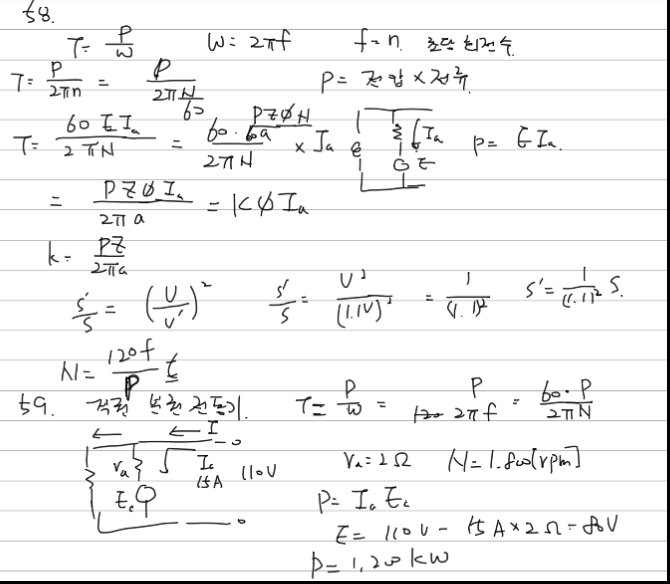 58.
T= P/ω    ω= 2πf    f=n. 초당 회전수.
T= P/2πn = P/(2πN/60)    P= 전압×전류.
T= 60 E Iₐ/2πN = (60· PZφN/60a)/2πN × Iₐ    Iₐ E    P= E Iₐ.
= PZφIₐ/2πa = KφIₐ
k= PZ/2πa
s'/s = (V/V')²    s'/s = V²/(1.1V)² = 1/(1.1)²    s'= 1/(1.1)² s.
N= 120f/P
59. 직권 전동기.    T= P/ω = P/2πf = 60·P/2πN
I
rₐ    15A    110V    rₐ=2Ω    N=1.800[rpm]
E꜀    P= Iₐ E꜀
E= 110V - 15A×2Ω=80V
P= 1,200 kW